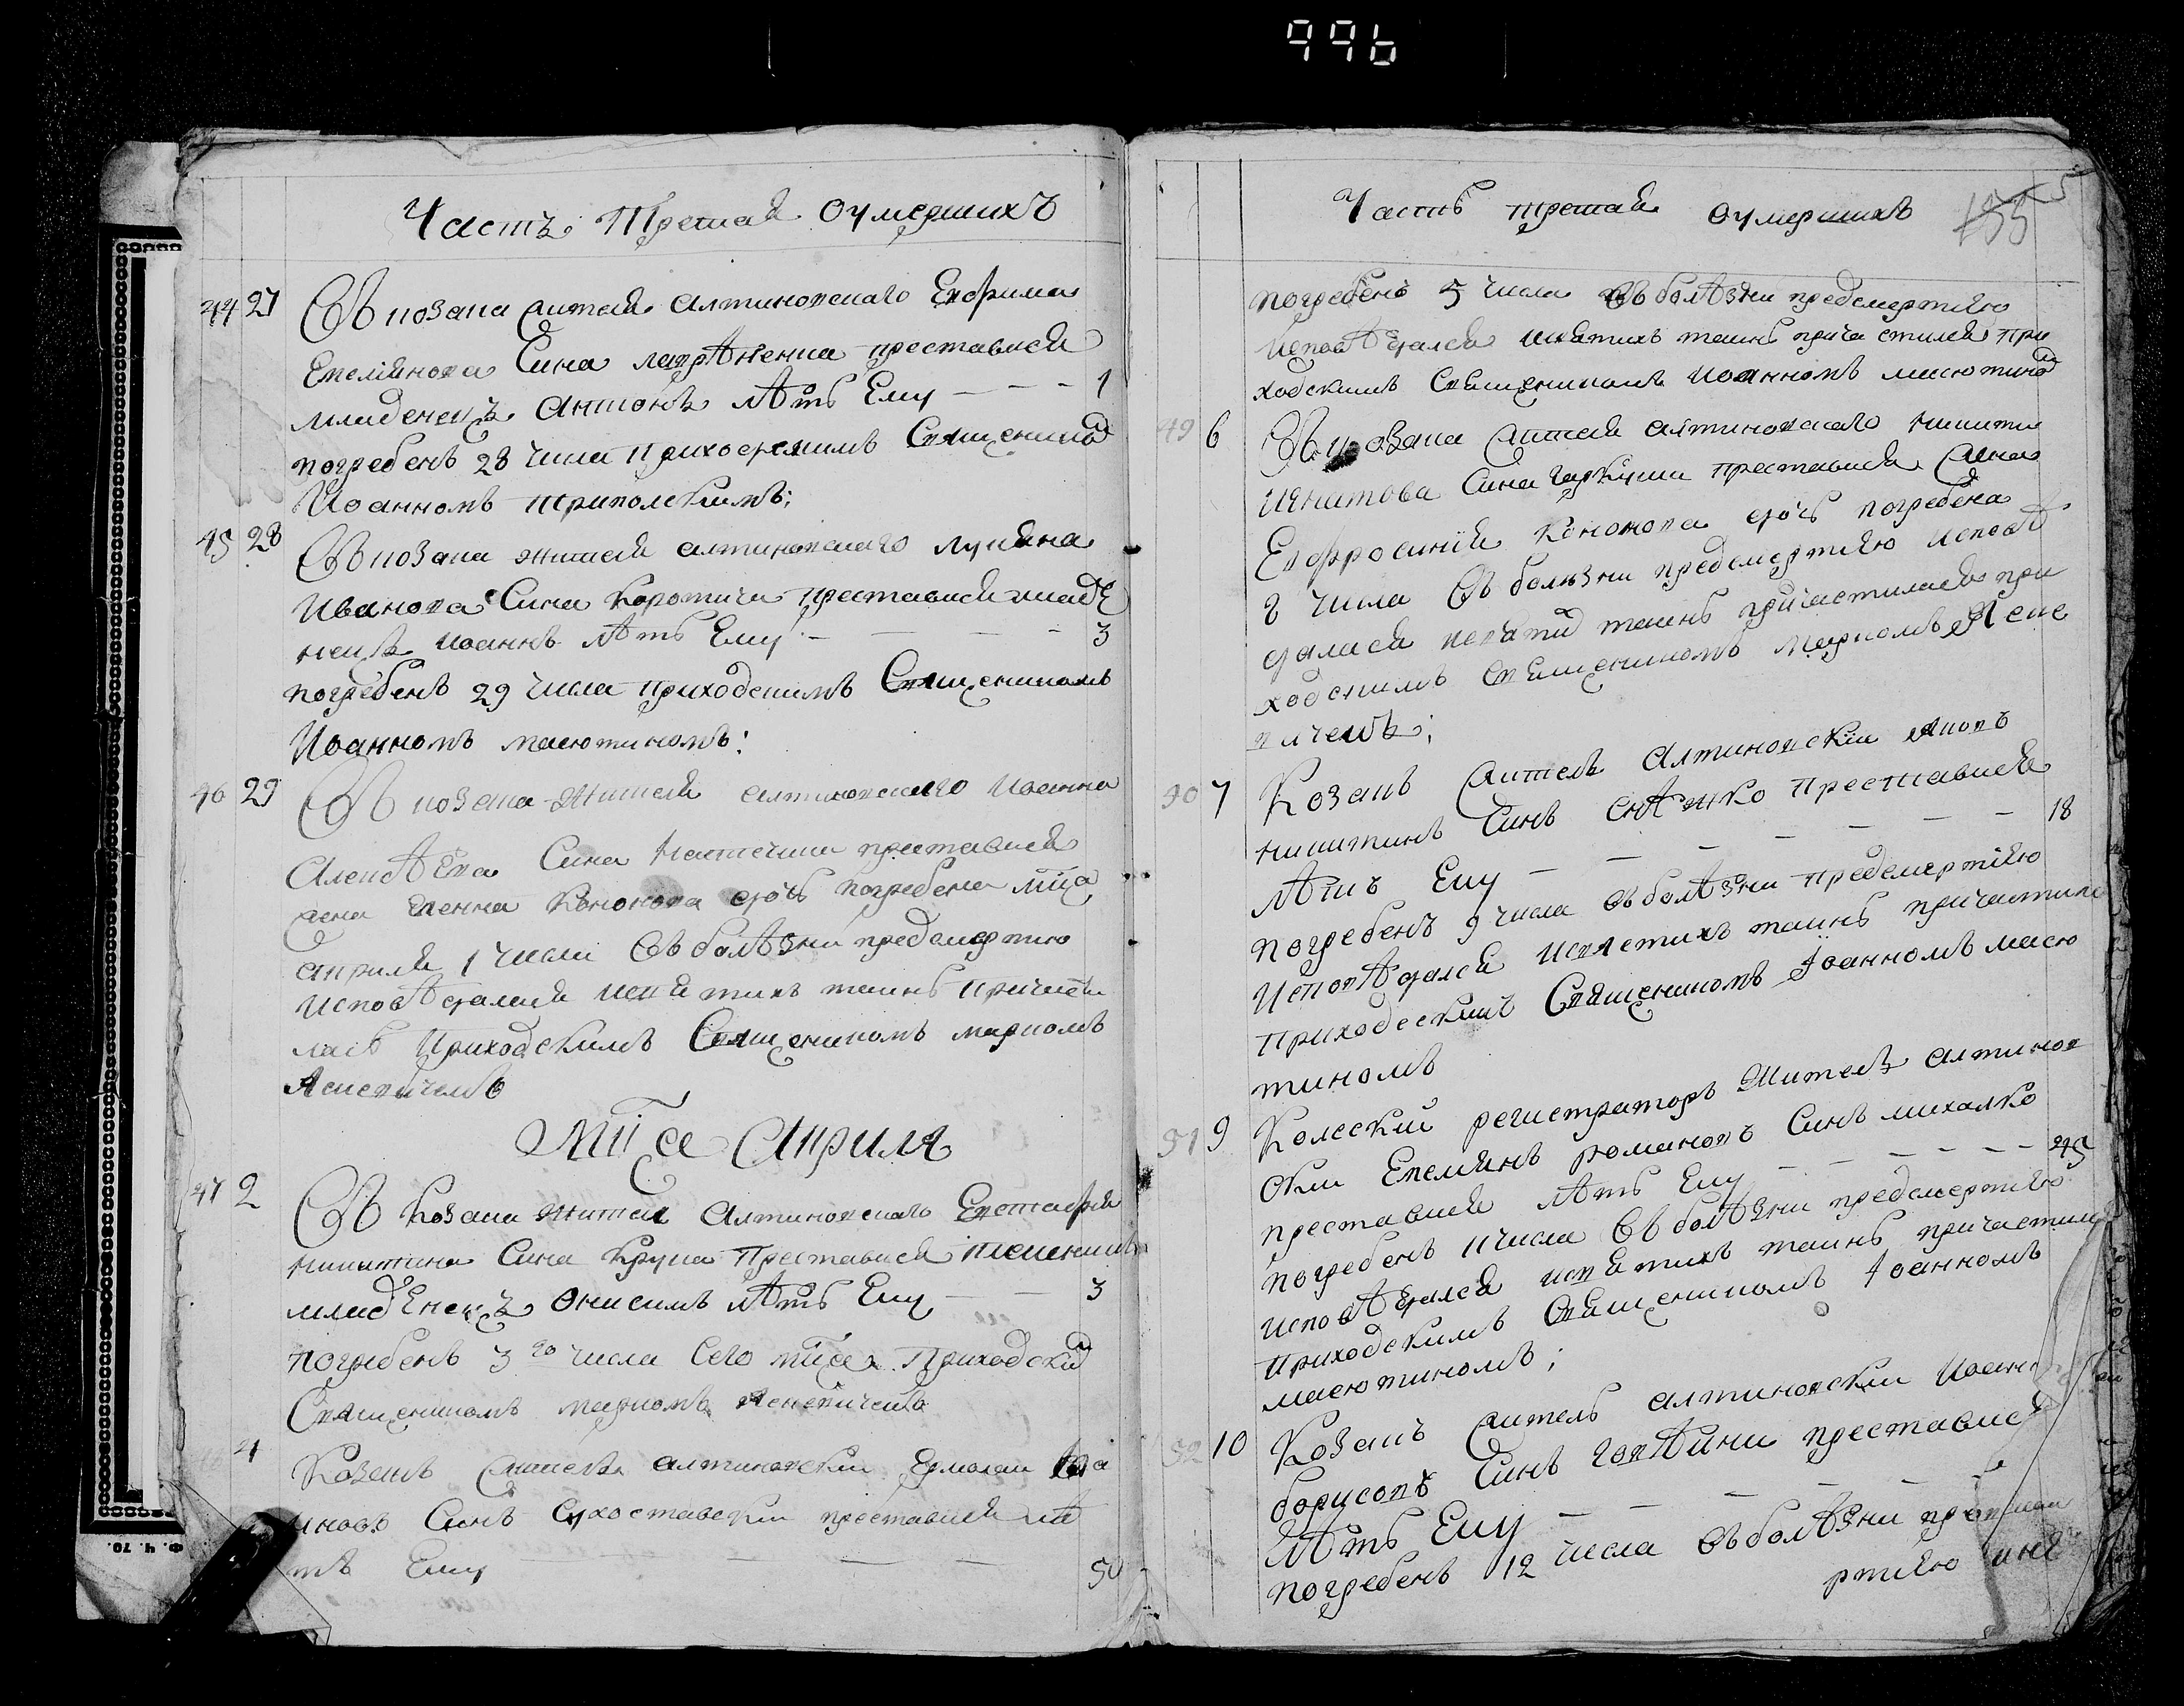 996
Частъ Третая Оумершихъ
44 27 Въ козака жителя алтиновского Евфима
Емелїянова Сина лаврѣненка преставися
младенецъ Антонъ лѣтъ Ему — — — 1
погребенъ 28 числа Приходскимъ Священикомъ
Иоанномъ триполскимъ;
45 28 Въ козака жителя алтиновского лукяна
Иванова Сина коротича преставися младе
нецъ иоаннъ лѣтъ Ему — — — 3
погребенъ 29 числа приходскимъ Священикомъ
Иоанномъ масютиномъ:
46 29 Въ козака жителя алтиновского Иоанна
Алексѣева Сина преставися
жена Еленна Кононова дочь погребена мїца
априля 1 числа въ болѣзни предсмертию
исповѣдалася исвятихъ таинъ причасти
лась Приходскимъ Священикомъ маркомъ
Ясневичемъ
Мїца Априля
47 2 Въ козака жителя Алтиновского Евстафия
никитина Сина Крука Преставися племеникъ
младЕнецъ Онисимъ лѣтъ Ему — — 3
погребенъ 3го числа Сего мїца Приходским
Священикомъ маркомъ Ясневичемъ
4 Козакъ жителъ алтиновский Ермолай
иновъ Синъ Сухоставский преставися лѣ
тъ Ему — — — 50
Частъ третая Оумершихъ 155
погребенъ 5 числа въ болѣзни предсмертїю
Исповѣдался исвятихъ таинъ причастился При
ходскимъ Священикомъ Иоанномъ масютином
49 6 Въ козака жителя алтиновского никити
Игнатова Сина гаркуши преставися жена
Евфросинїя Кононова дочь погребена
8 числа въ болѣзни предсмертїю исповѣ
далася исвятих таинъ причастилася при
ходскимъ Священикомъ маркомъ Ясне
вичемъ;
50 7 Козакъ жителъ Алтиновскїй яковъ
никитинъ Синъ снѣжко преставися
лѣтъ Ему — — — — 18
погребенъ 9 числа въ болѣзни предсмертїю
Исповѣдался исвятихъ таинъ причастил
приходскимъ Священикомъ Іоанномъ масю
тиномъ
51 9 Колеский регистраторъ Жителъ алтинов
ский Емелянъ романовъ Синъ михалко
преставися лѣтъ Ему — — — — 45
погребенъ 11 числа въ болѣзни предсмертїю
исповѣдался исвятихъ таинъ причастил
приходскимъ Священикомъ Іоанномъ
масютиномъ;
52 10 Козакъ житель алтиновский Иоанн
борисовъ Синъ преставися
Лѣтъ Ему — — —
погребенъ 12 числа въ болѣзни
ртїю
Ф. Ч. 70.